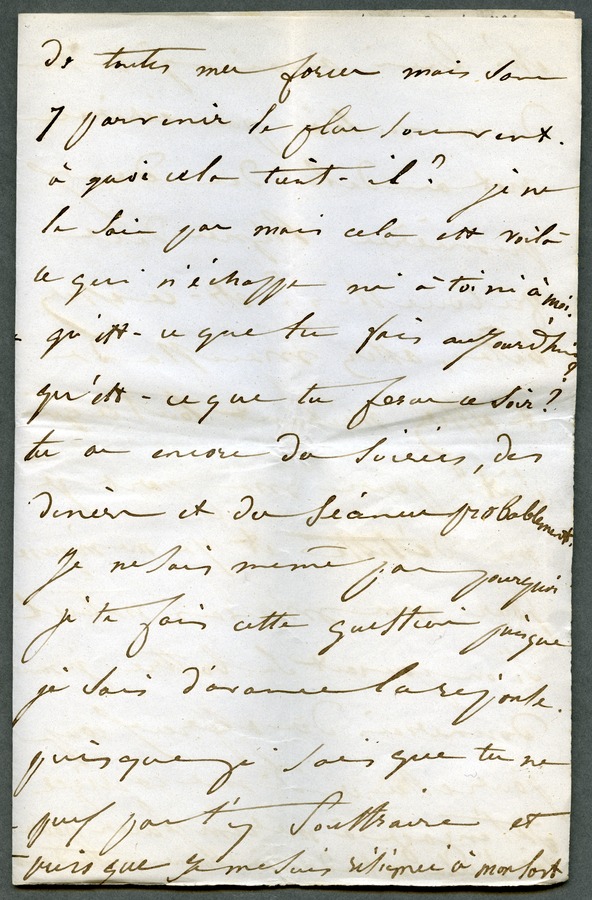 de toutes mes forces mais sans
y parvenir le plus souvent.
à quoi cela tient-il? je ne
le sais pas mais cela est voilà
ce qui n'échappe ni à toi ni à moi.
qu'est-ce que tu fais aujourd'hui?
qu'est-ce que tu feras ce soir?
tu as encore des soirées, des
diners et des séances probablement.
Je ne sais même pas pourquoi
je te fais cette question puisque
je sais d'avance la réponse.
puisque je sais que tu ne
peux pas t'y soustraire et
puis que je me suis résignée à mon sort